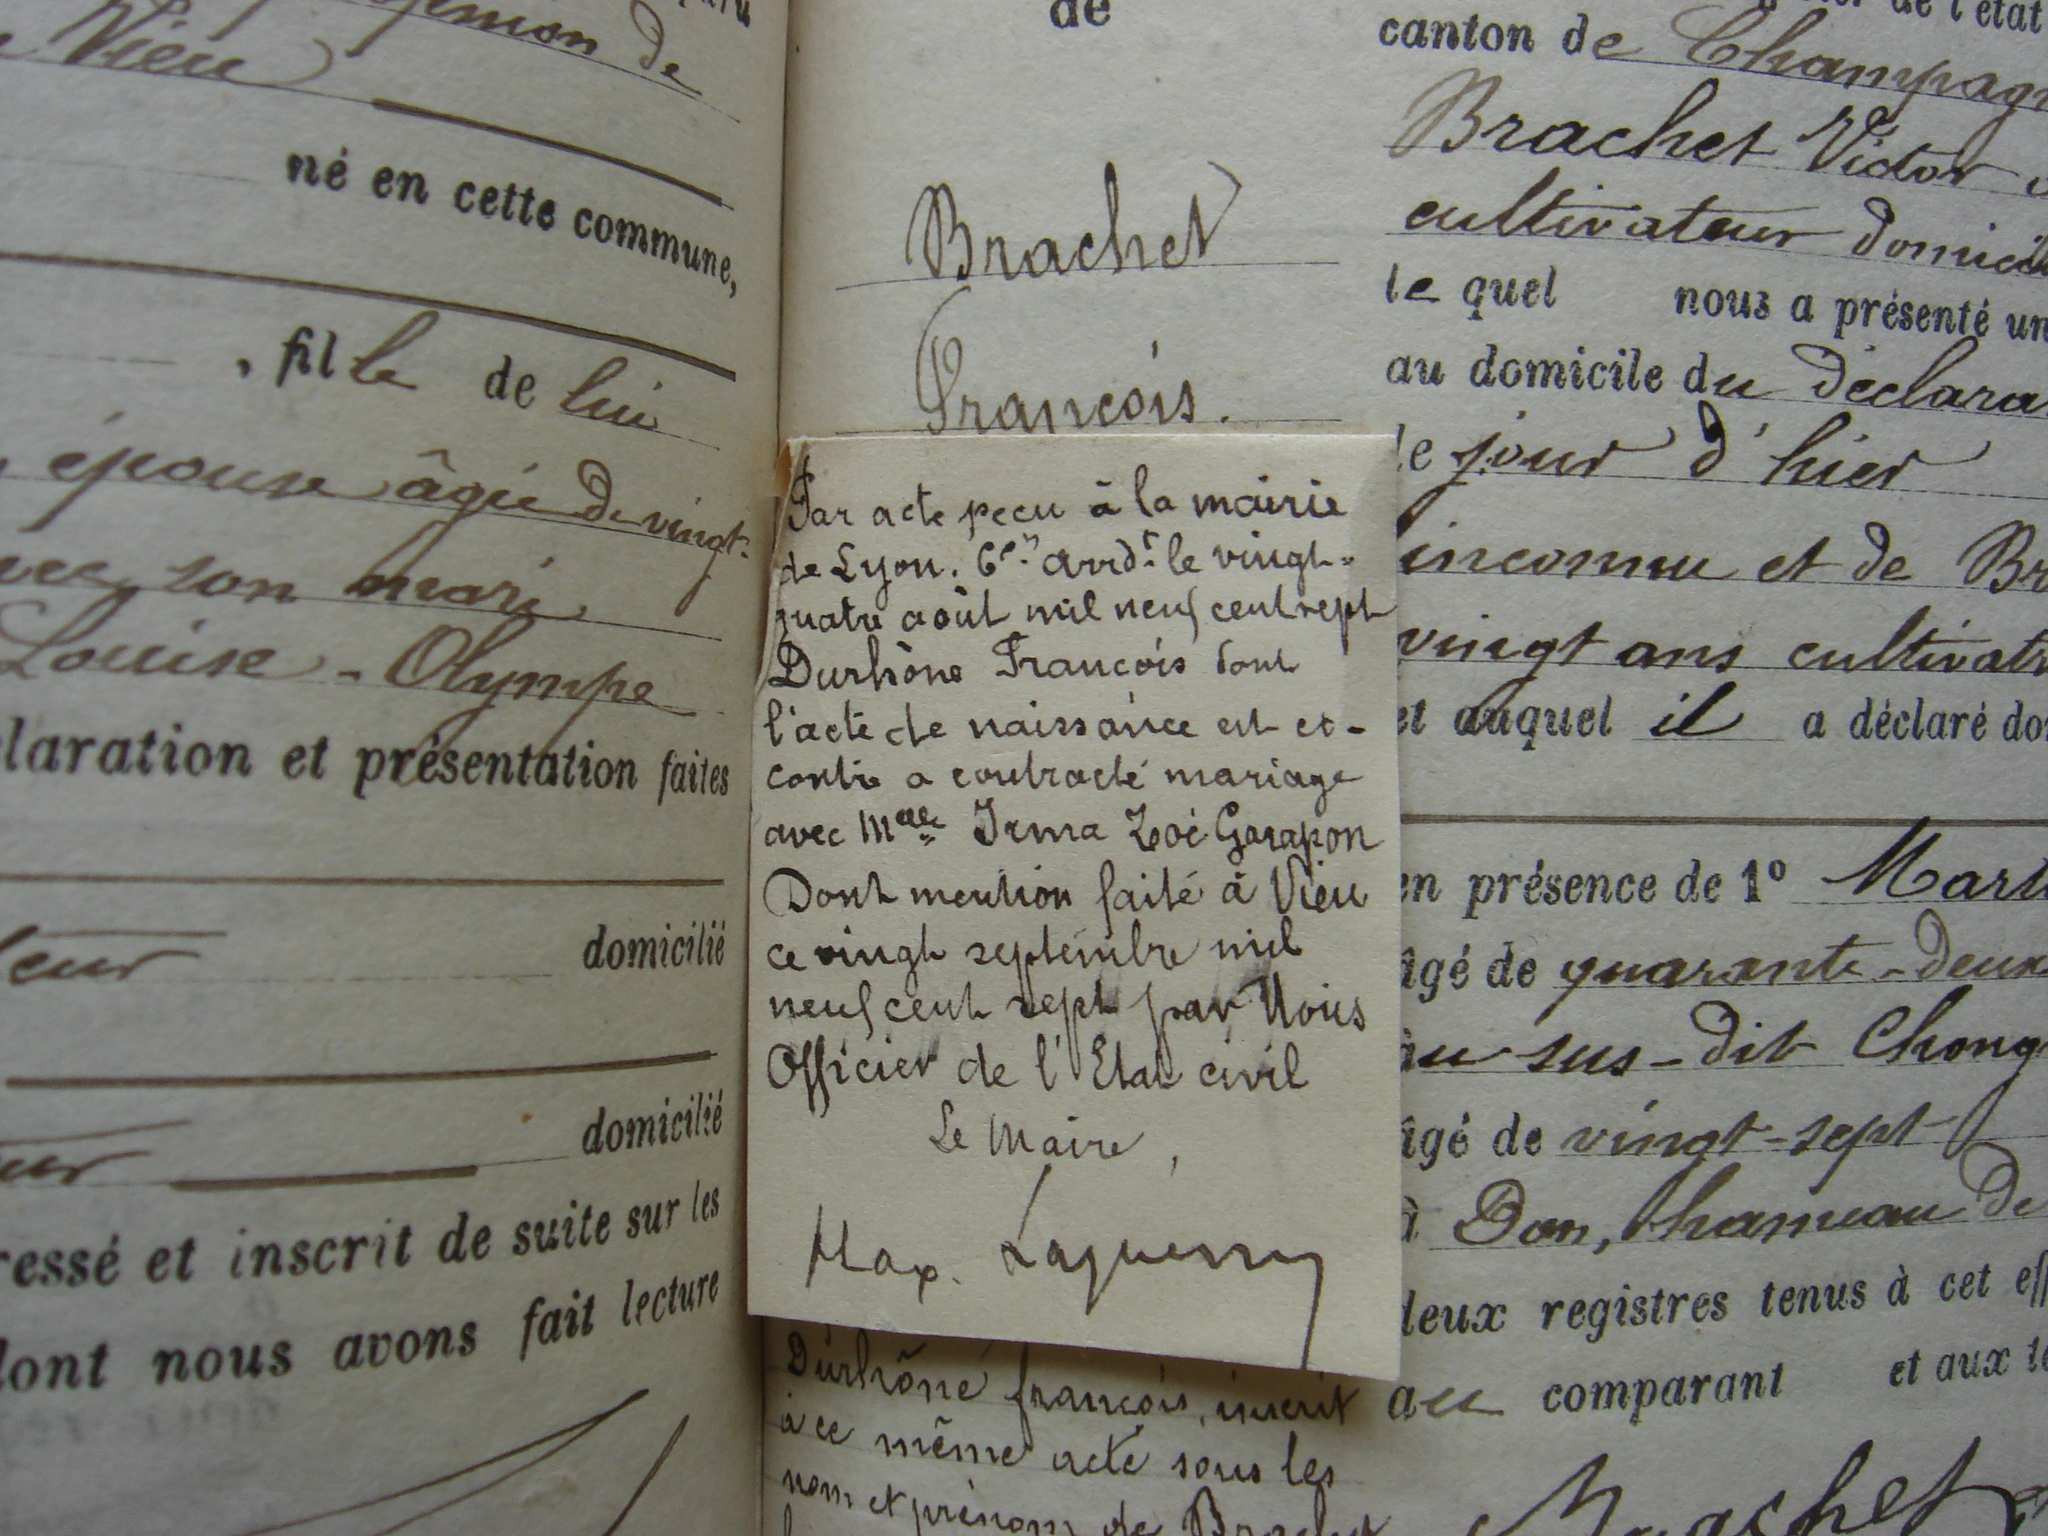 de
Vieu
né en cette commune,
, fille de lui
épouse âgée de vingt-
son mari
Louise - Olympe
laration et présentation faites
domicilié
domicilié
ressé et inscrit de suite sur les
dont nous avons fait lecture
de
Brachet
François.
Par acte reçu à la mairie
de Lyon. 6e arrdt le vingt-
quatre août mil neuf cent sept
Durhône François dont
l'acte de naissance est ci-
contre a contracté mariage
avec Melle Irma Zoé Garapon
Dont mention faite à Vieu
ce vingt septembre mil
neuf cent sept par Nous
Officier de l'Etat civil
Le Maire,
Max. Laguerry
Durhône françois, inscrit
à ce même acte sous les
nom et prénom de Brachet
de l'état
canton de Champagn
Brachet Victor
cultivateur domicil
le quel nous a présenté un
au domicile du déclara
le jour d'hier
inconnu et de Br
vingt ans cultivatr
et auquel il a déclaré do
en présence de 1º Mart
âgé de quarante-deux
au sus-dit Chong
âgé de vingt-sept
à Don, hameau de
deux registres tenus à cet eff
au comparant et aux té
Brachet